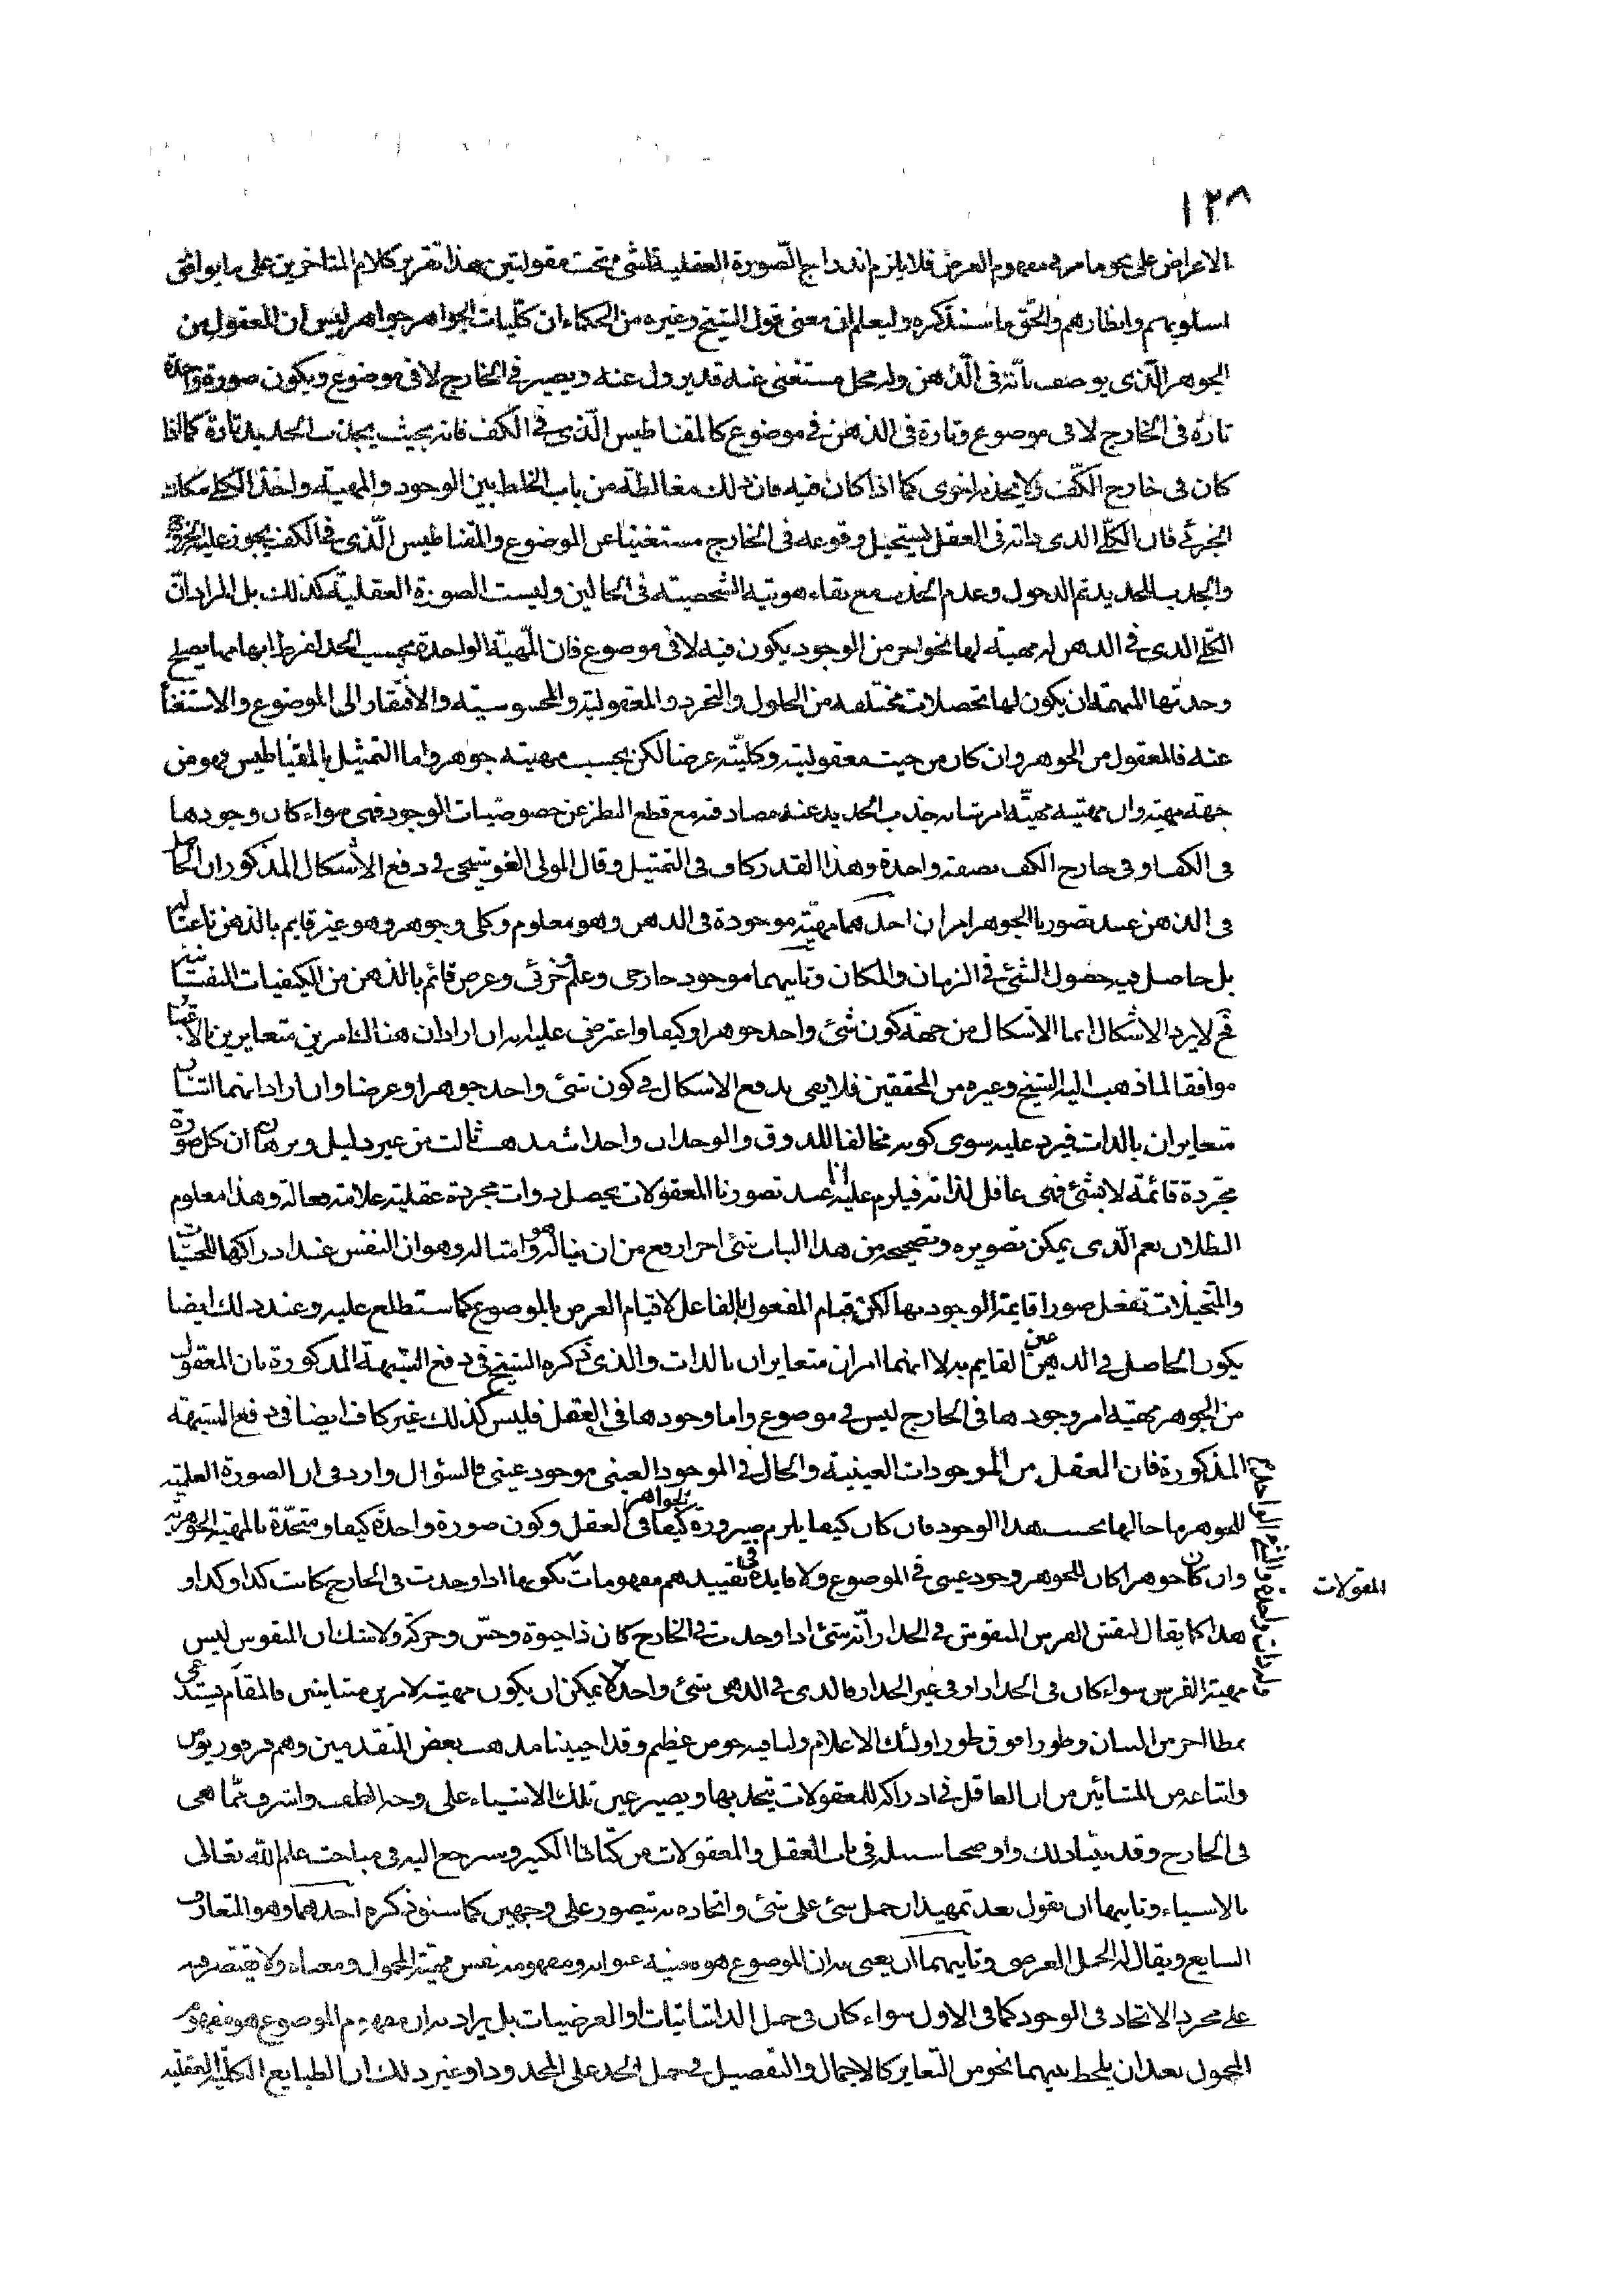 ١٢٨
الاعراض على نحو ما مر فى مفهوم العرض فلا يلزم اندراج الصورة العقلية لشئ تحت مقولتين هذا تقرير كلام المتاخرين على ما يوافق
اسلوبهم وانظارهم والحق ما سنذكره وليعلم ان معنى قول الشيخ وغيره من الحكماء ان كليات الجواهر جواهر ليس ان المعقول من
الجوهر الذى يوصف بانه فى الذهن وله محل مستغنى عنه قد يزول عنه ويصير فى الخارج لا فى موضوع ويكون صورة واحدة
تارة فى الخارج لا فى موضوع وتارة فى الذهن فى موضوع كالمقناطيس الذى فى الكف فانه بحيث يجذب الحديد تارة كما اذا
كان فى خارج الكف ولا يجذبه اخرى كما اذا كان فيه فان ذلك مغالطة من باب الخلط بين الوجود والمهية واخذ الكلى مكان
الجزئى فان الكلى الذى ذاته فى العقل يستحيل وقوعه فى الخارج مستغنيا عن الموضوع والمقناطيس الذى فى الكف يجوز عليه الخروج
والجذب للحديد ثم الدخول وعدم الجذب مع بقاء هويته الشخصية فى الحالين وليست الصورة العقلية كذلك بل المراد ان
الكلى الذى فى الذهن له مهية لها نحو اخر من الوجود يكون فيه لا فى موضوع فان المهية الواحدة بحسب الحد لفرط ابهامها يصلح
وحدتها المبهمة ان يكون لها تحصلات مختلفة من الحلول والتجرد والمعقولية والمحسوسية والافتقار الى الموضوع والاستغناء
عنه فالمعقول من الجوهر وان كان من حيث معقوليته وكليته عرضا لكن بحسب مهيته جوهر واما التمثيل بالمقناطيس فهو من
جهة مهيته وان مهيته مهية امر شانه جذب الحديد عند مصادفته مع قطع النظر عن خصوصيات الوجود فهى سواء كان وجودها
فى الكف او فى خارج الكف بصفة واحدة وهذا القدر كاف فى التمثيل وقال المولى القوشجى فى دفع الاشكال المذكور ان الحاصل
فى الذهن عند تصورنا الجوهر امران احدهما مهية موجودة فى الذهن وهو معلوم وكلى وجوهر وهو غير قايم بالذهن ناعتا له
بل حاصل فيه حصول الشئ فى الزمان والمكان وثانيهما موجود خارجى وعلم وجزئى وعرض قائم بالذهن من الكيفيات النفسانية
فح لا يرد الاشكال انما الاشكال من جهة كون شئ واحد جوهرا وكيفا واعترض عليه بان اراد ان هناك امرين متغايرين بالاعتبار
موافقا لما ذهب اليه الشيخ وغيره من المحققين فلا يفى بدفع الاشكال فى كون شئ واحد جوهرا وعرضا وان اراد انهما اثنان
متغايران بالذات فيرد عليه سوى كونه مخالفا للذوق والوجدان واحداث مذهب ثالث من غير دليل وبرهان ان كل صورة
مجردة قائمة لا بشئ فهى عاقل لذاته فيلزم عليه انا عند تصورنا المعقولات يحصل ذوات مجردة عقلية علامة فعالة وهذا معلوم
البطلان نعم الذى يمكن تصويره وتصحيحه من هذا الباب شئ اخر ارفع من ان يناله هو وامثاله وهو ان النفس عند ادراكها للحسيات
والمتخيلات تفعل صورا قايمة الوجود بها لكن قيام المفعول بالفاعل لا قيام العرض بالموضوع كما ستطلع عليه وعند ذلك ايضا
يكون الحاصل فى الذهن عين القايم به لا انهما امران متغايران بالذات والذى ذكره الشيخ فى دفع الشبهة المذكورة بان المعقول
من الجوهر مهيته امر وجودها فى الخارج ليس فى موضوع واما وجودها فى العقل فليس كذلك غير كاف ايضا فى دفع الشبهة
المذكورة فان العقل من الموجودات العينية والحال فى الموجود العينى موجود عينى فالسؤال وارد فى ان الصورة العلمية
للجوهر ما حالها بحسب هذا الوجود فان كان كيفا يلزم صيرورة الجواهر كيفا فى العقل وكون صورة واحدة كيفا ومتحدة بالمهية الجوهرية
وان كان جوهرا كان للجوهر وجود عينى فى الموضوع ولا فايدة فى تقييدهم مفهومات المقولات بكونها اذا وجدت فى الخارج كانت كذا وكذا و
هذا كما يقال لنقش الفرس المنقوش فى الجدار انه شئ اذا وجدت فى الخارج كان ذا حيوة وحس وحركة ولا شك ان المنقوش ليس
مهية الفرس سواء كان فى الجدار او فى غير الجدار فالذى فى الذهن شئ واحد لا يمكن ان يكون مهية لامرين متباينين فالمقام يستدعى
نمطا اخر من البيان وطورا فوق طور اولئك الاعلام ولنا فيه خوض عظيم وقد احيينا مذهب بعض المتقدمين وهم فرفوريوس
واتباعه من المشائين من ان العاقل فى ادراكه للمعقولات يتحد بها ويصير عين تلك الاشياء على وجه الطف واشرف مما هى
فى الخارج وقد بينا ذلك واوضحنا سبيله فى باب العقل والمعقولات من كتابنا الكبير وسنرجع اليه فى مباحث علم الله تعالى
بالاشياء وثانيها ان نقول بعد تمهيد ان حمل شئ على شئ واتحاده به يتصور على وجهين كما سنوذكره احدهما وهو المتعارف
الشايع ويقال له الحمل العرضى وثانيهما ان يعنى به ان الموضوع هو بعينه عنوانه ومفهومه نفس مهية المحمول ومعناه ولا يقتصر فيه
على مجرد الاتحاد فى الوجود كما فى الاول سواء كان فى حمل الذاتيات او العرضيات بل يراد به ان مفهوم الموضوع هو مفهوم
المحمول بعد ان يلحظ بينهما نحو من التغاير كالاجمال والتفصيل فى حمل الحد على المحدود او غير ذلك ان الطبايع الكلية العقلية
المقولات